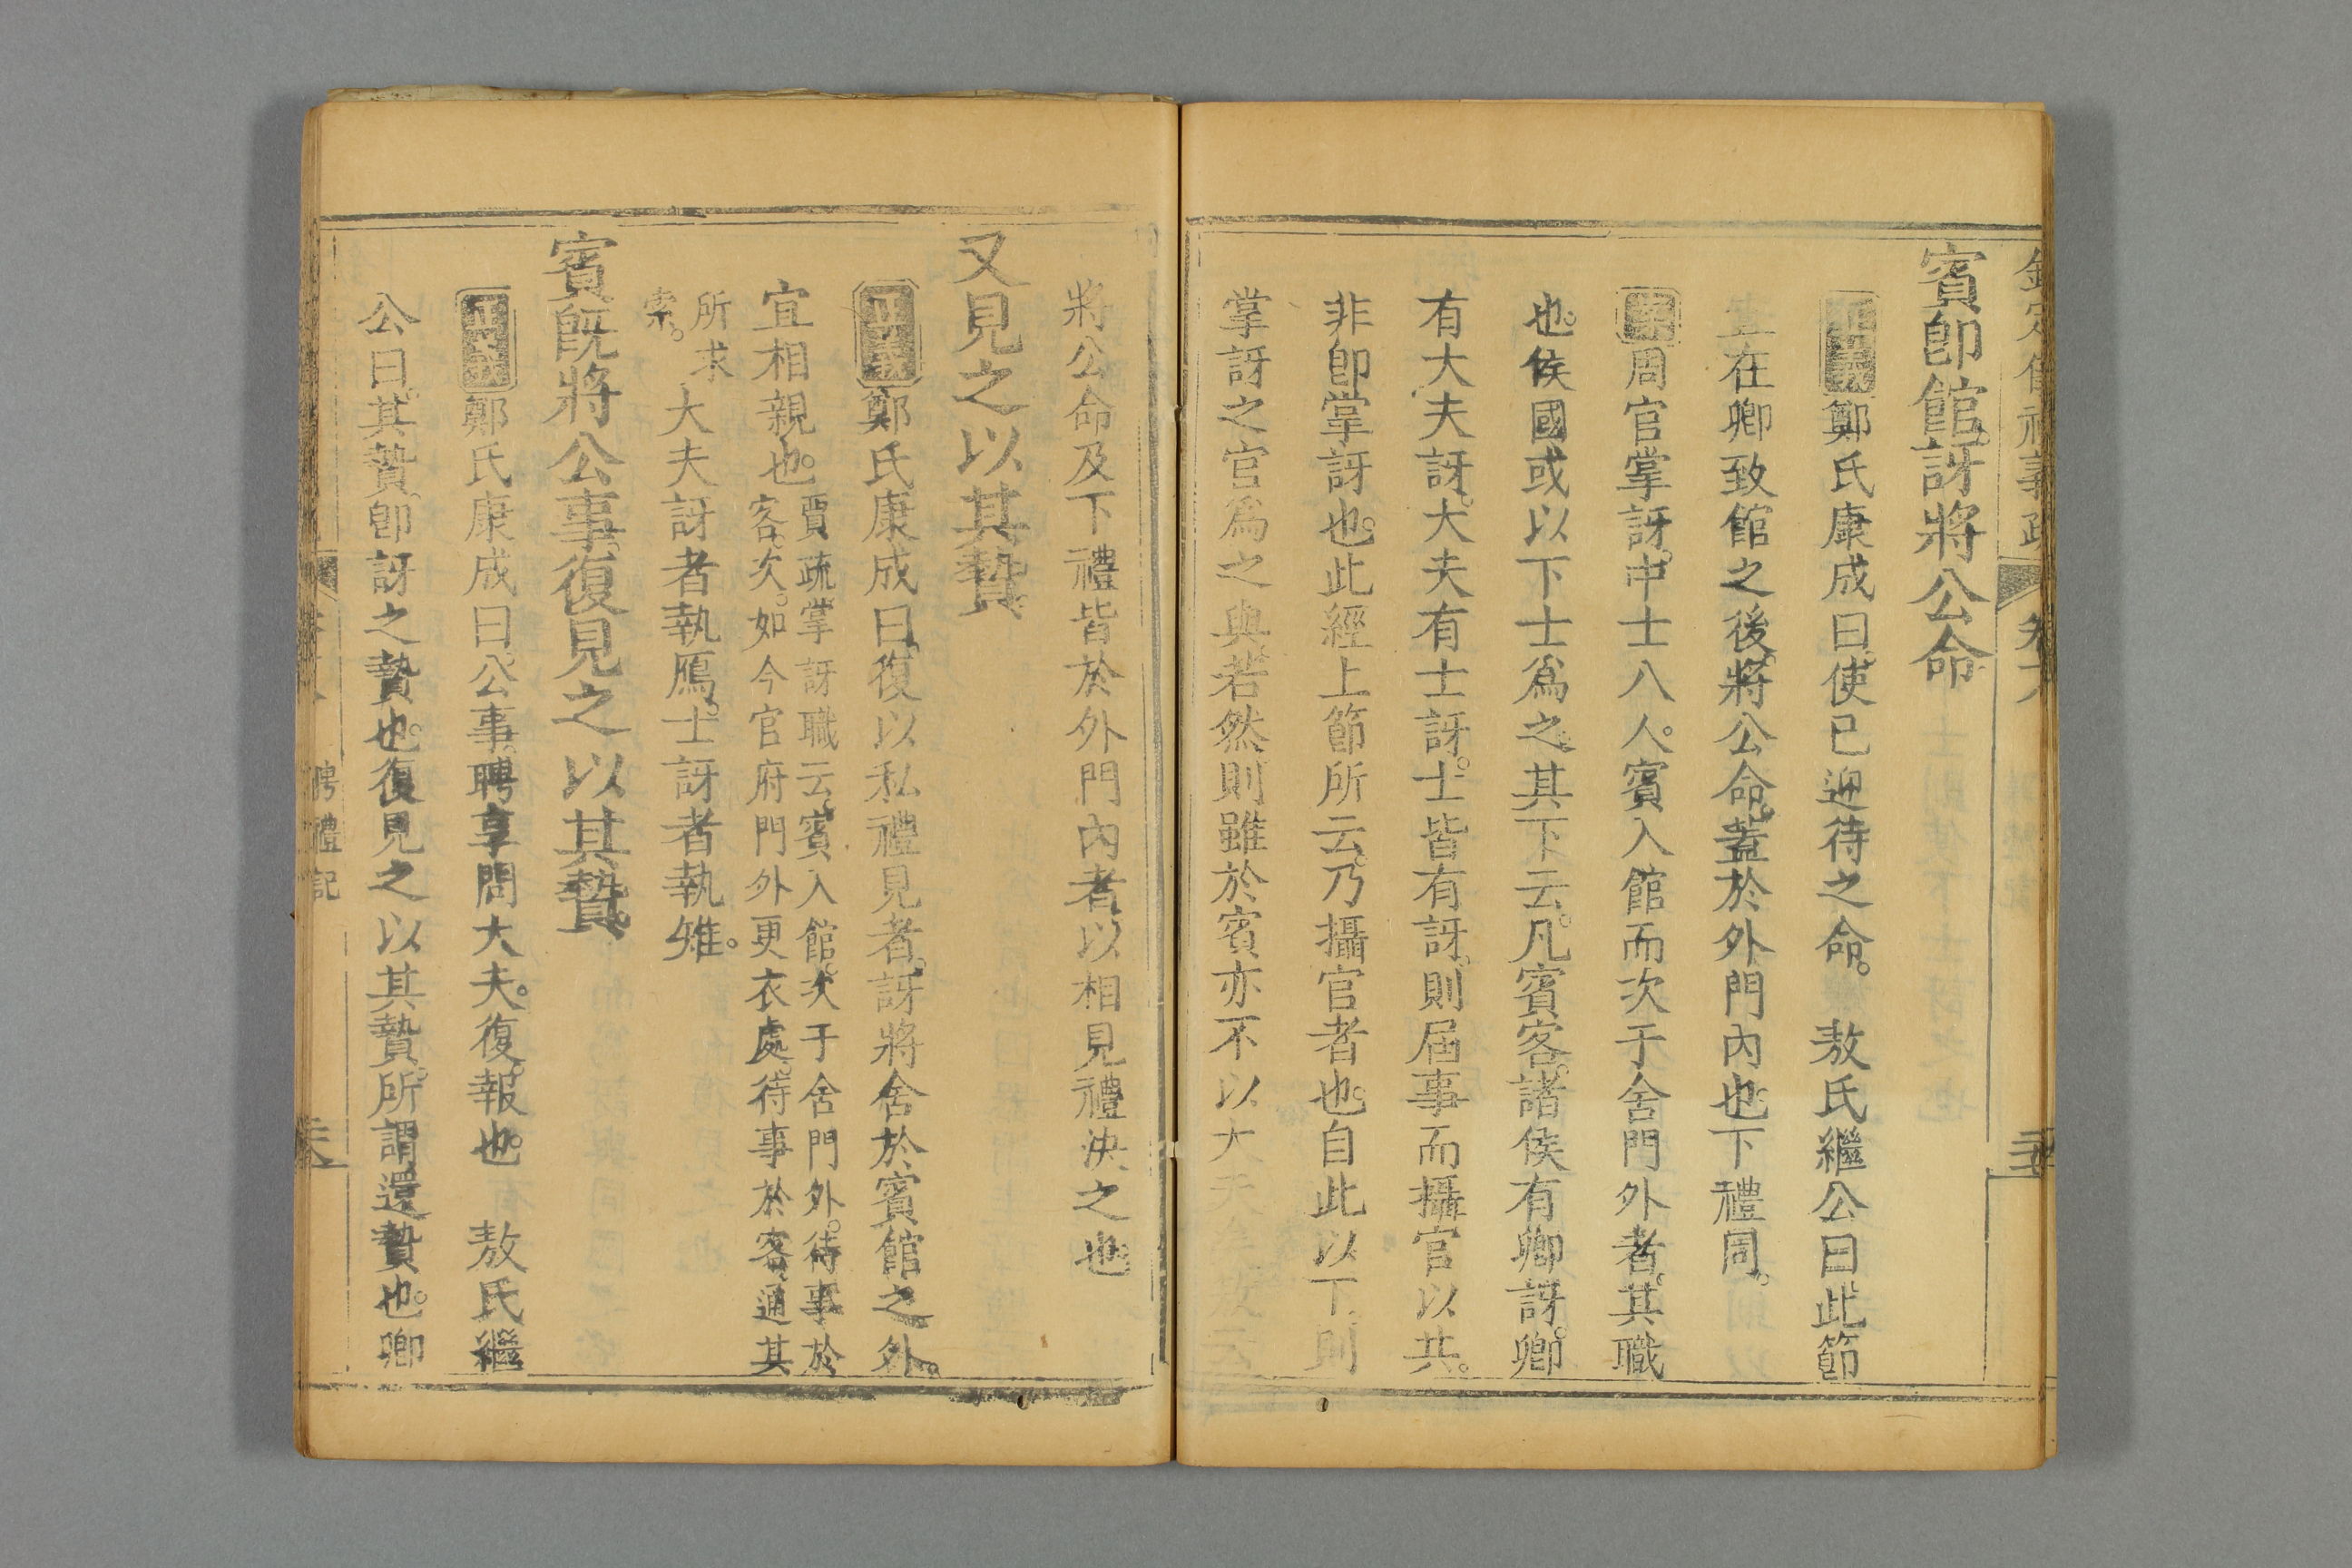 欽定儀禮義疏 卷十八
賓卽館訝將公命
正義鄭氏康成曰使已迎待之命。 敖氏繼公曰此節
宜在卿致館之後將公命蓋於外門內也下禮同。
案周官掌訝中士八人。賓入館而次于舍門外者其職
也。侯國或以下士爲之其下云。凡賓客諸侯有卿訝。卿
有大夫訝。大夫有士訝。士皆有訝則屆事而攝官以共。
非卽掌訝也。此經上節所云乃攝官者也。自此以下則
掌訝之官爲之與若然則雖於賓亦不以大夫
將公命及下禮皆於外門內者以相見禮決之也
又見之以其贄
正義鄭氏康成曰復以私禮見者訝將舍於賓館之外。
宜相親也。賈疏掌訝職云賓入館次于舍門外。待事於
客。次如今官府門外更衣處待事於客通其
所求
索。大夫訝者執鴈。士訝者執雉。
賓旣將公事復見之以其贄
正義鄭氏康成曰公事聘享問大夫。復報也。 敖氏繼
公曰其贄卽訝之贄也。復見之以其贄所謂還贄也。卿
聘禮記